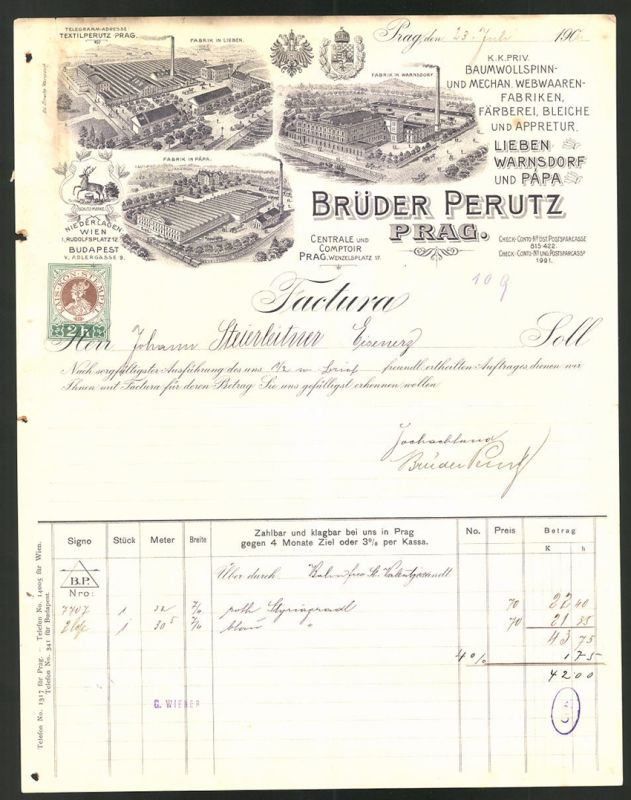 TELEGRAMM-ADRESSE:
TEXTILPERUTZ PRAG.
FABRIK IN LIEBEN.
Prag, den 23. Juli 190
K.K. PRIV.
BAUMWOLLSPINN-
UND MECHAN. WEBWAAREN-
FABRIKEN,
FÄRBEREI, BLEICHE
UND APPRETUR.
LIEBEN
WARNSDORF
UND PÁPA
FABRIK IN WARNSDORF
FABRIK IN PÁPA.
SCHUTZ-MARKE
NIEDERLAGEN:
WIEN
I, RUDOLFSPLATZ 12.
BUDAPEST
V. ADLERGASSE 9.
BRÜDER PERUTZ
PRAG.
CENTRALE UND
COMPTOIR
PRAG, WENZELSPLATZ 17.
CHECK-CONTO-Nº ÖST. POSTSPARCASSE
815.422.
CHECK-CONTO-Nº UNG. POSTSPARCASSE
1991.
109
2 h
Factura
Herr Johann Steierleitner Eisenerz Soll
Nach sorgfältigster Ausführung des uns freundl. ertheilten Auftrages dienen wir
Ihnen mit Factura für deren Betrag Sie uns gefälligst erkennen wollen
Hochachtend
Brüder Perutz
Signo Stück Meter Breite Zahlbar und klagbar bei uns in Prag gegen 4 Monate Ziel oder 3% per Kassa. No. Preis Betrag
K h
B.P.
Nro:
7707 1 32 7/8 roth Styriagradl 70 22 40
1 30⁵ 7/8 blau " 70 21 35
43 75
4% 1 75
42 00
G. WIENER
Telefon No. 1317 für Prag. – Telefon No. 14005 für Wien.
Telefon No. 341 für Budapest.